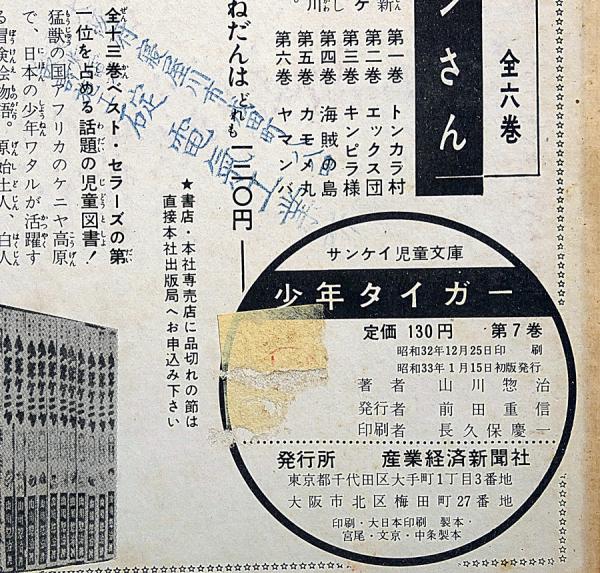 全六巻
ンさん
第一巻 トンカラ村
第二巻 エックス団
第三巻 キンピラ様
第四巻 海賊の島
第五巻 カモメ丸
第六巻 ヤマンバ
ねだんはどれも一三〇円
★書店・本社専売店に品切れの節は
直接本社出版局へお申込み下さい
全十三巻ベスト・セラーズの第
一位を占める話題の児童図書!
猛獣の国アフリカのケニヤ高原
で、日本の少年ワタルが活躍す
る冒険絵物語。原始土人、白人
サンケイ児童文庫
少年タイガー
定価 130円 第7巻
昭和32年12月25日印 刷
昭和33年1月15日初版発行
著者 山川惣治
発行者 前田重信
印刷者 長久保慶一
発行所 産業経済新聞社
東京都千代田区大手町1丁目3番地
大阪市北区梅田町27番地
印刷・大日本印刷 製本・
宮尾・文京・中条製本